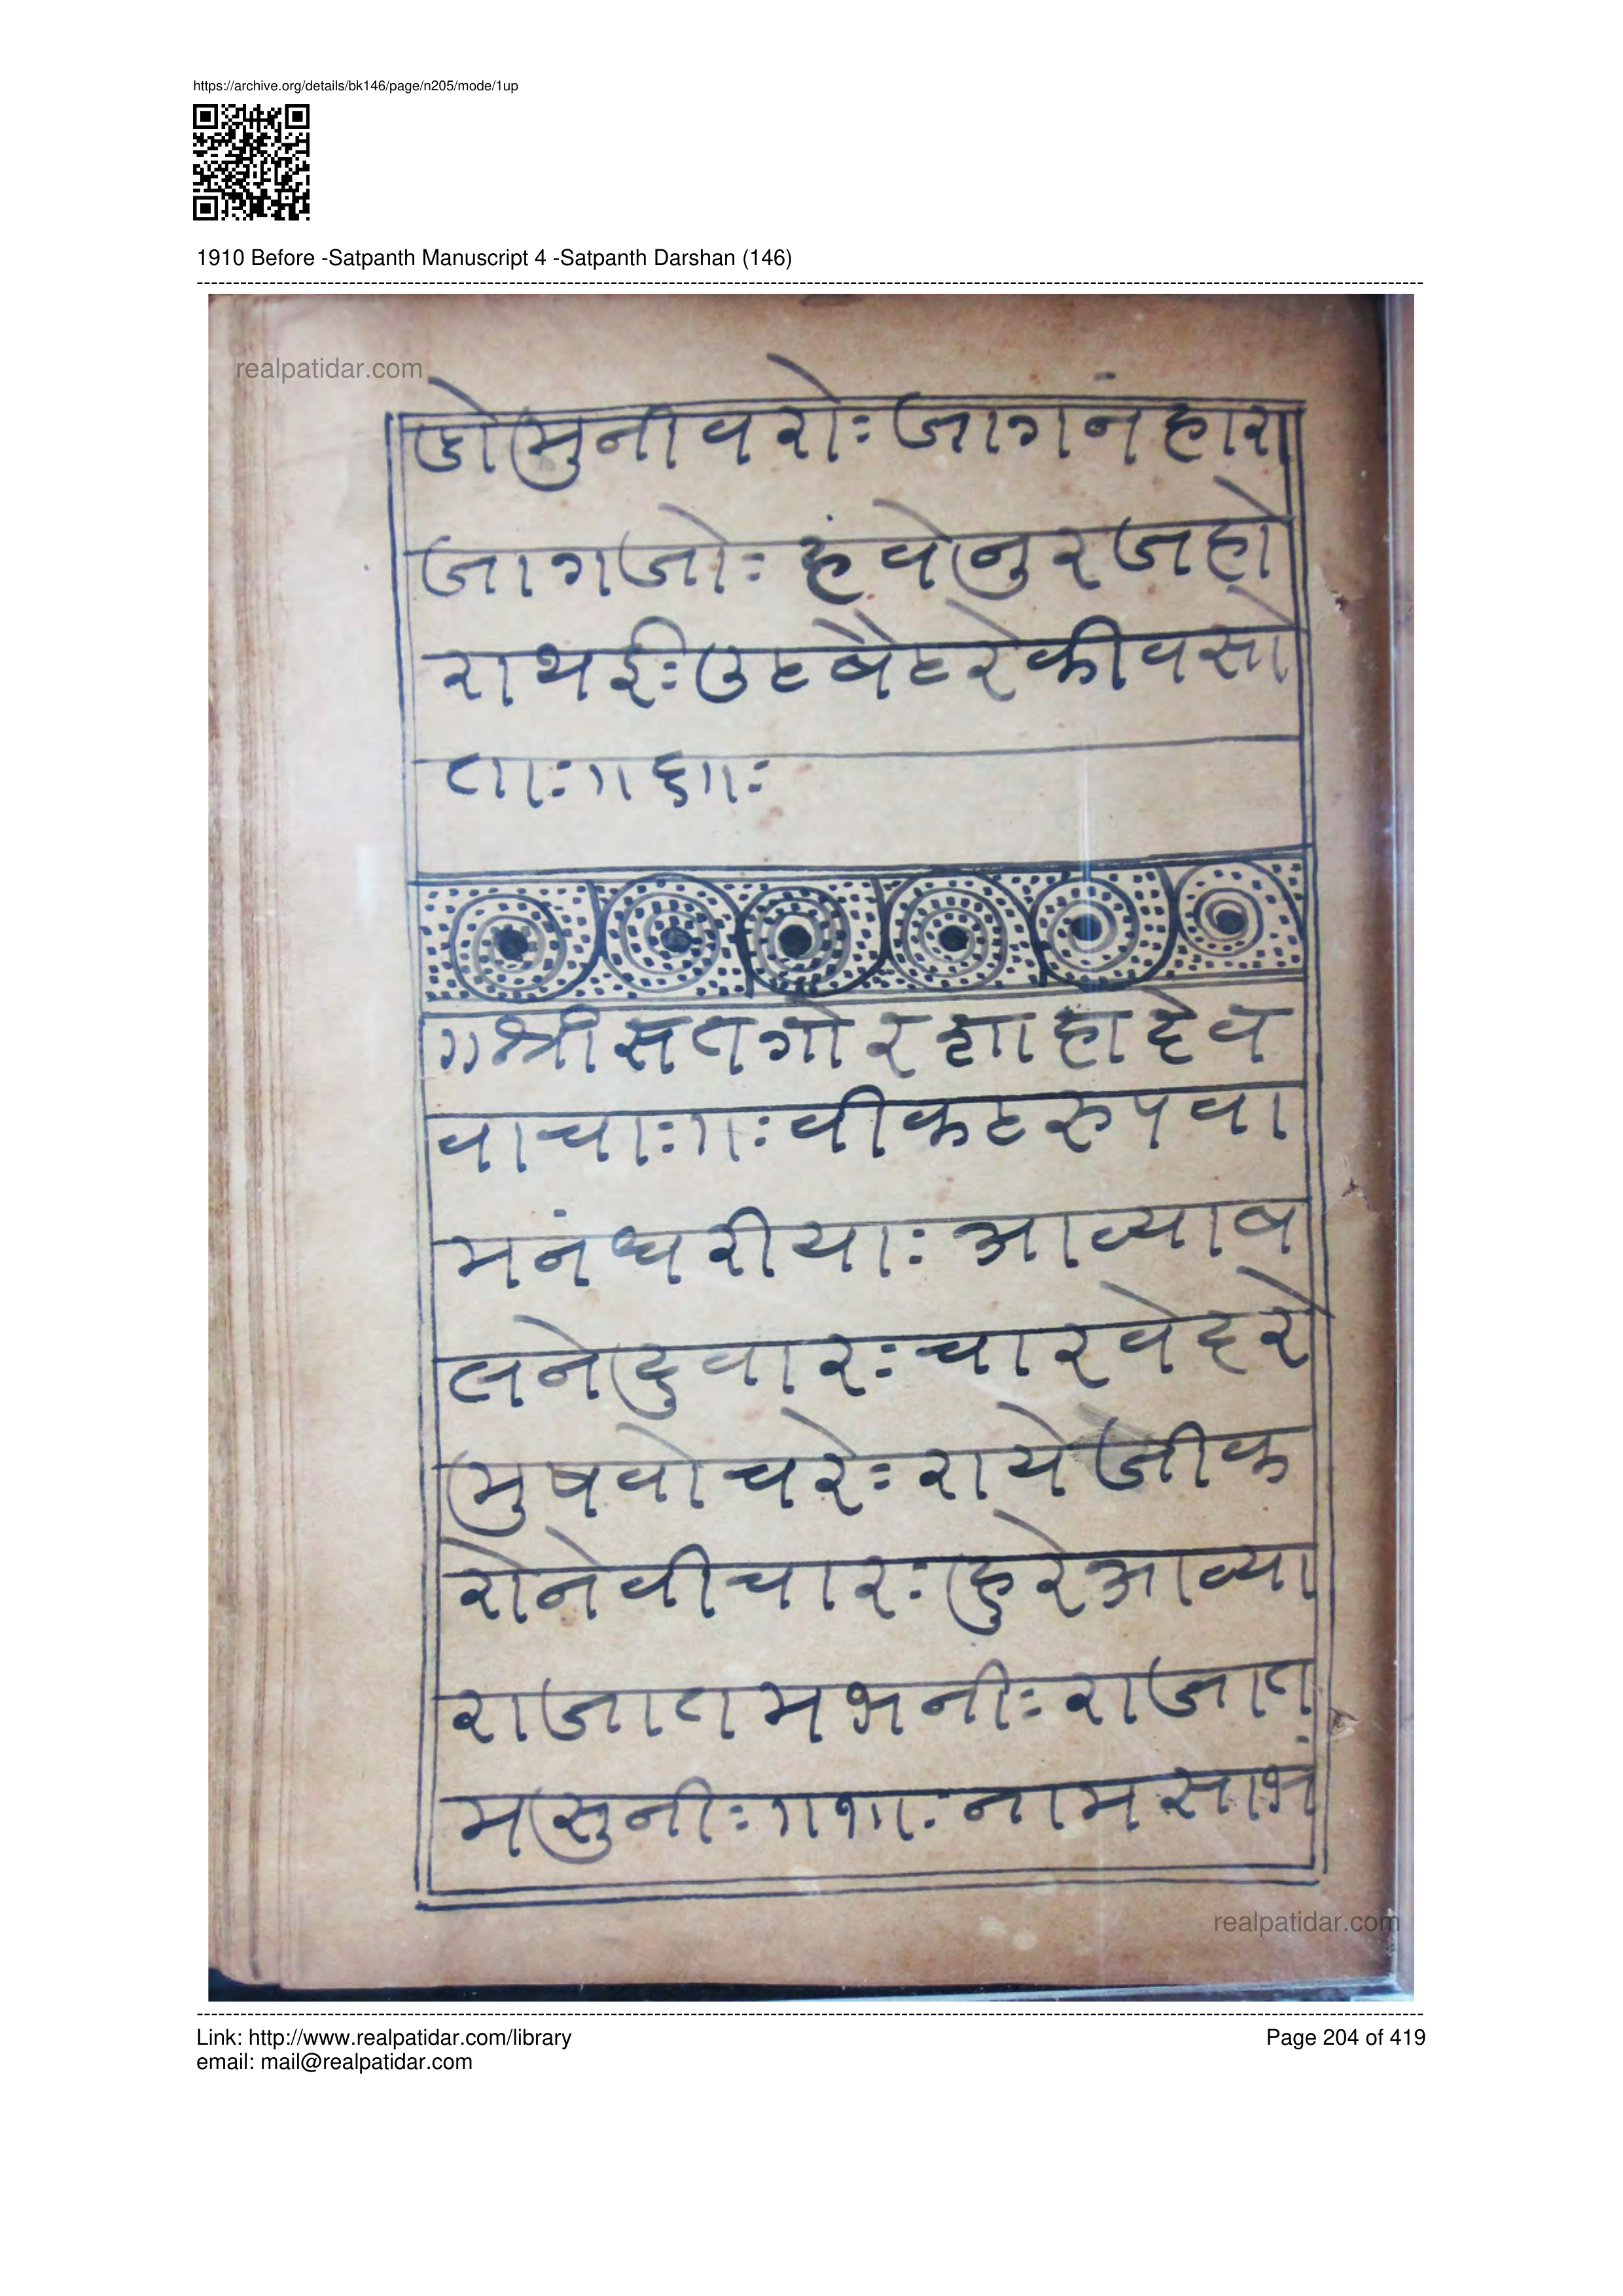 https://archive.org/details/bk146/page/n205/mode/1up
1910 Before -Satpanth Manuscript 4 -Satpanth Darshan (146)
realpatidar.com
जोमुनीवरोः जागनंहारा
जागजोः हंवेनुरजहो
राथईः उहबैहरेकीवसो
ताः॥६॥ः
॥श्रीसतगोरशाहादेव
वाचाः॥ः वीकटरुपवा
मनंधरीयाः आव्याब
लनेदुवारः चारवेदरे
मुषवोचरेः रायेजीक
रोनेवीचारः हुरेआव्या
राजातमभनीः राजात
मसुनीः॥१॥ः नामसाभं
realpatidar.com
Link: http://www.realpatidar.com/library
email: mail@realpatidar.com
Page 204 of 419